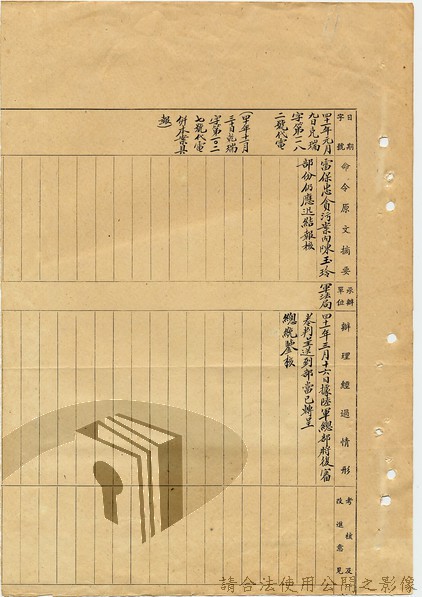 日期
字號
命令原文摘要
承辦
單位
辦理經過情形
考核及
改進意見
四十一年元月
九日克瑞
字第一二八
二號代電
(四十年十二月
三十日克瑞
字第一〇二
七號代電
併本案具
報)
雷保忠貪污案內陳玉玲
部份仍應迅結報核
軍法局
四十一年三月十六日據陸軍總部將復審
卷判呈送到部當已轉呈
總統鑒核
請合法使用公開之影像